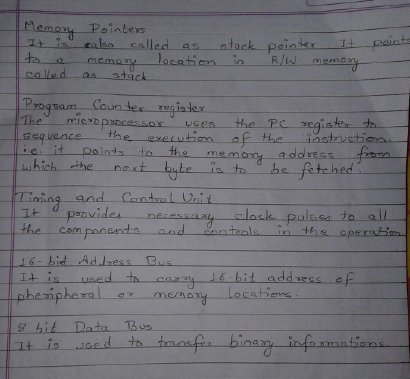 Memory Pointers
It is also called as stack pointer It points
to a memory location in R/W memory
called as stack
Program Counter register
The microprocessor uses the PC register to
sequence the execution of the instruction.
i.e. it points to the memory address from
which the next byte is to be fetched.
Timing and Control Unit
It provides necessary clock pulses to all
the components and controls in the operation
16-bit Address Bus
It is used to carry 16-bit address of
pheripheral or memory locations.
8 bit Data Bus
It is used to transfer binary informations.